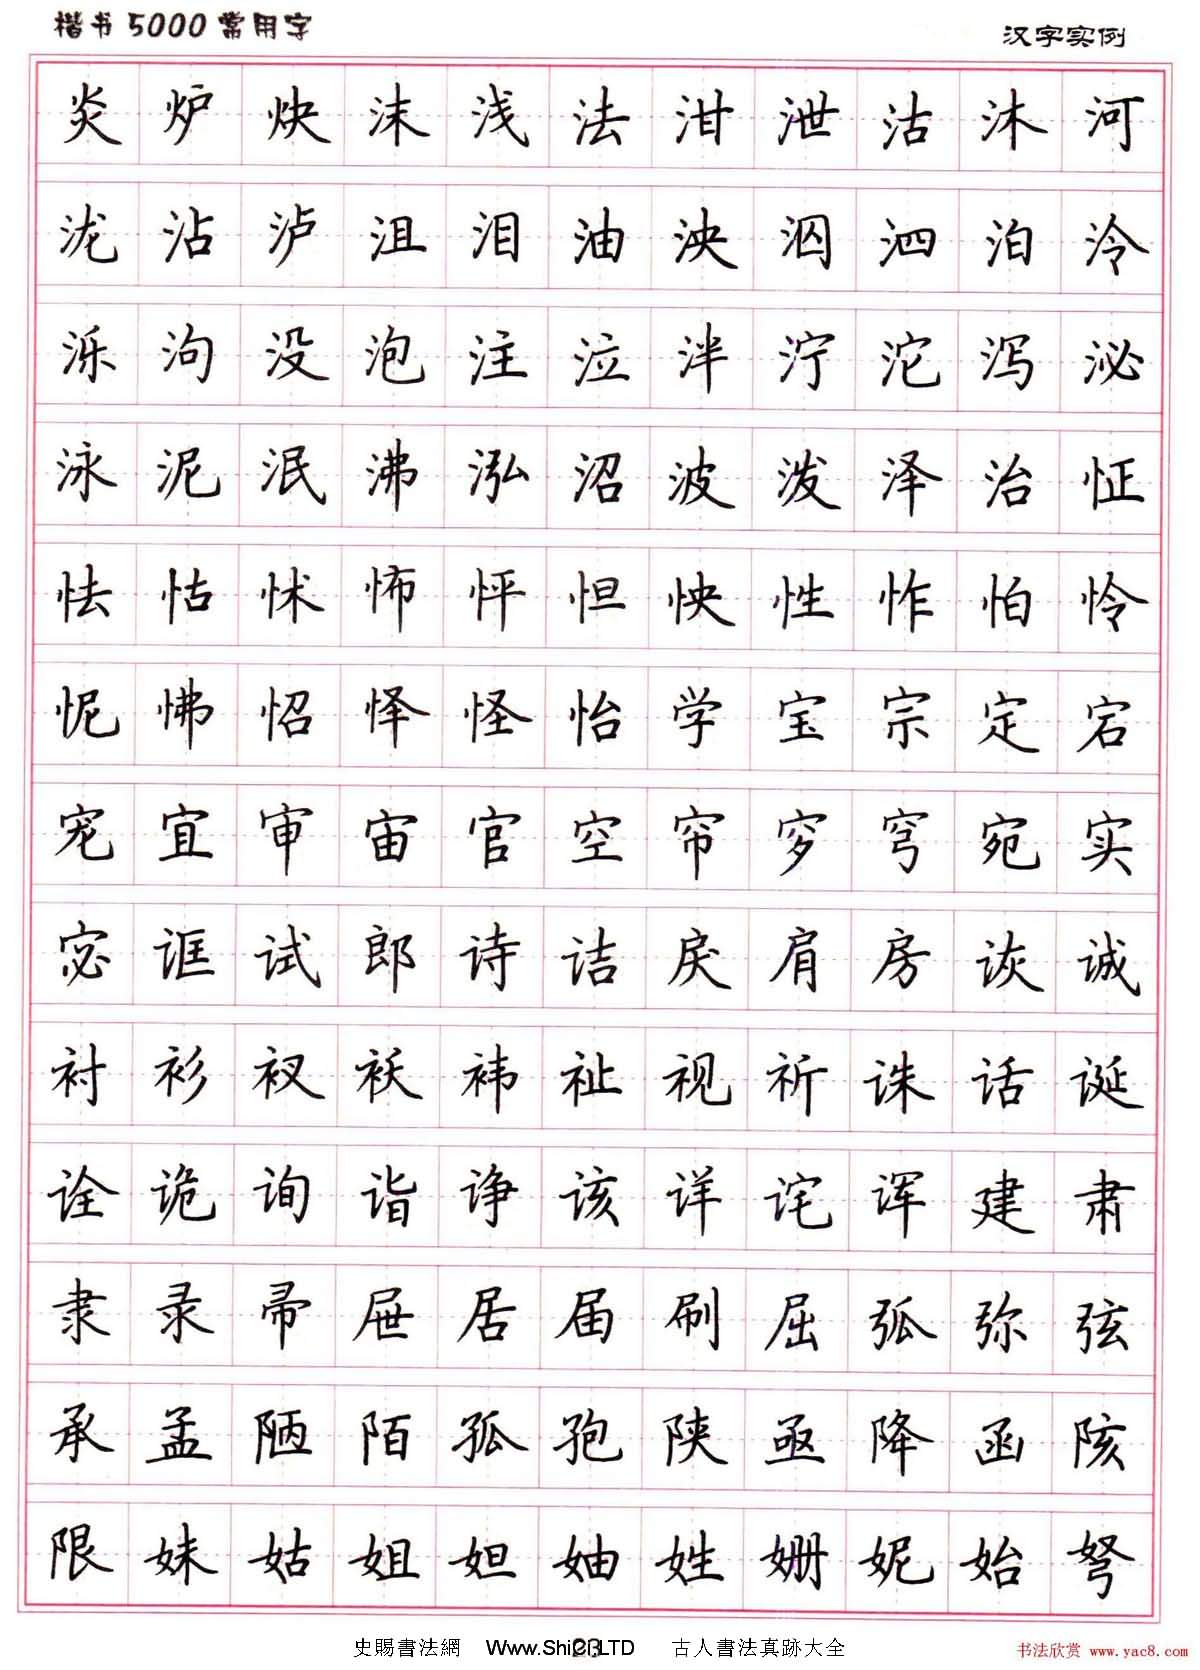 楷书5000常用字
汉字实例
炎炉炔沫浅法泔泄沽沐河
泷沾泸沮泪油泱泅泗泊泠
泺沟没泡注泣泮泞沱泻泌
泳泥泯沸泓沼波泼泽治怔
怯怙怵怖怦怛怏性怍怕怜
怩怫怊怿怪怡学宝宗定宕
宠宜审宙官空帘穸穹宛实
宓诓试郎诗诘戾肩房诙诚
衬衫衩袄祎祉视祈诛话诞
诠诡询诣诤该详诧诨建肃
隶录帚屉居届刷屈弧弥弦
承孟陋陌孤孢陕亟降函陔
限妹姑姐妲妯姓姗妮始弩
23
史賜書法網 Www.ShiCi.LTD 古人書法真跡大全
书法欣赏 www.yac8.com